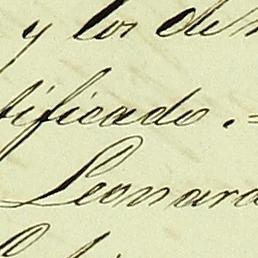 y los de
tificado.=
Leonard